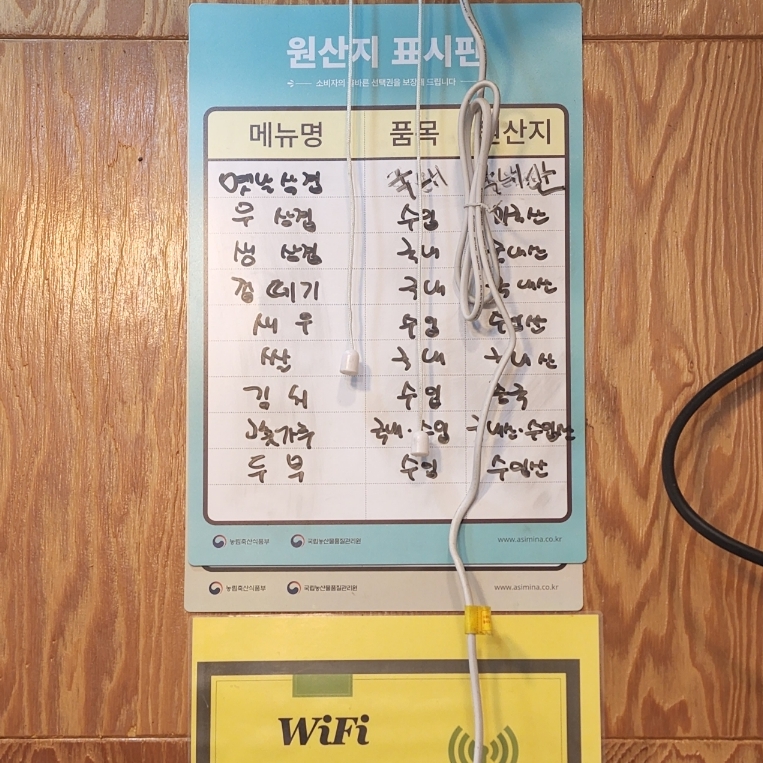 원산지 표시판
소비자의 올바른 선택권을 보장해 드립니다
메뉴명 품목 원산지
옛날삼겹 국내 국내산
우 삼겹 수입
생 삼겹 국내 국내산
국내 국내산
새우 수입 수입산
쌀 국내 국내산
김치 수입 중국
고춧가루 국내·수입 국내산·수입산
두부 수입 수입산
농림축산식품부 국립농산물품질관리원 www.asimina.co.kr
농림축산식품부 국립농산물품질관리원 www.asimina.co.kr
WiFi